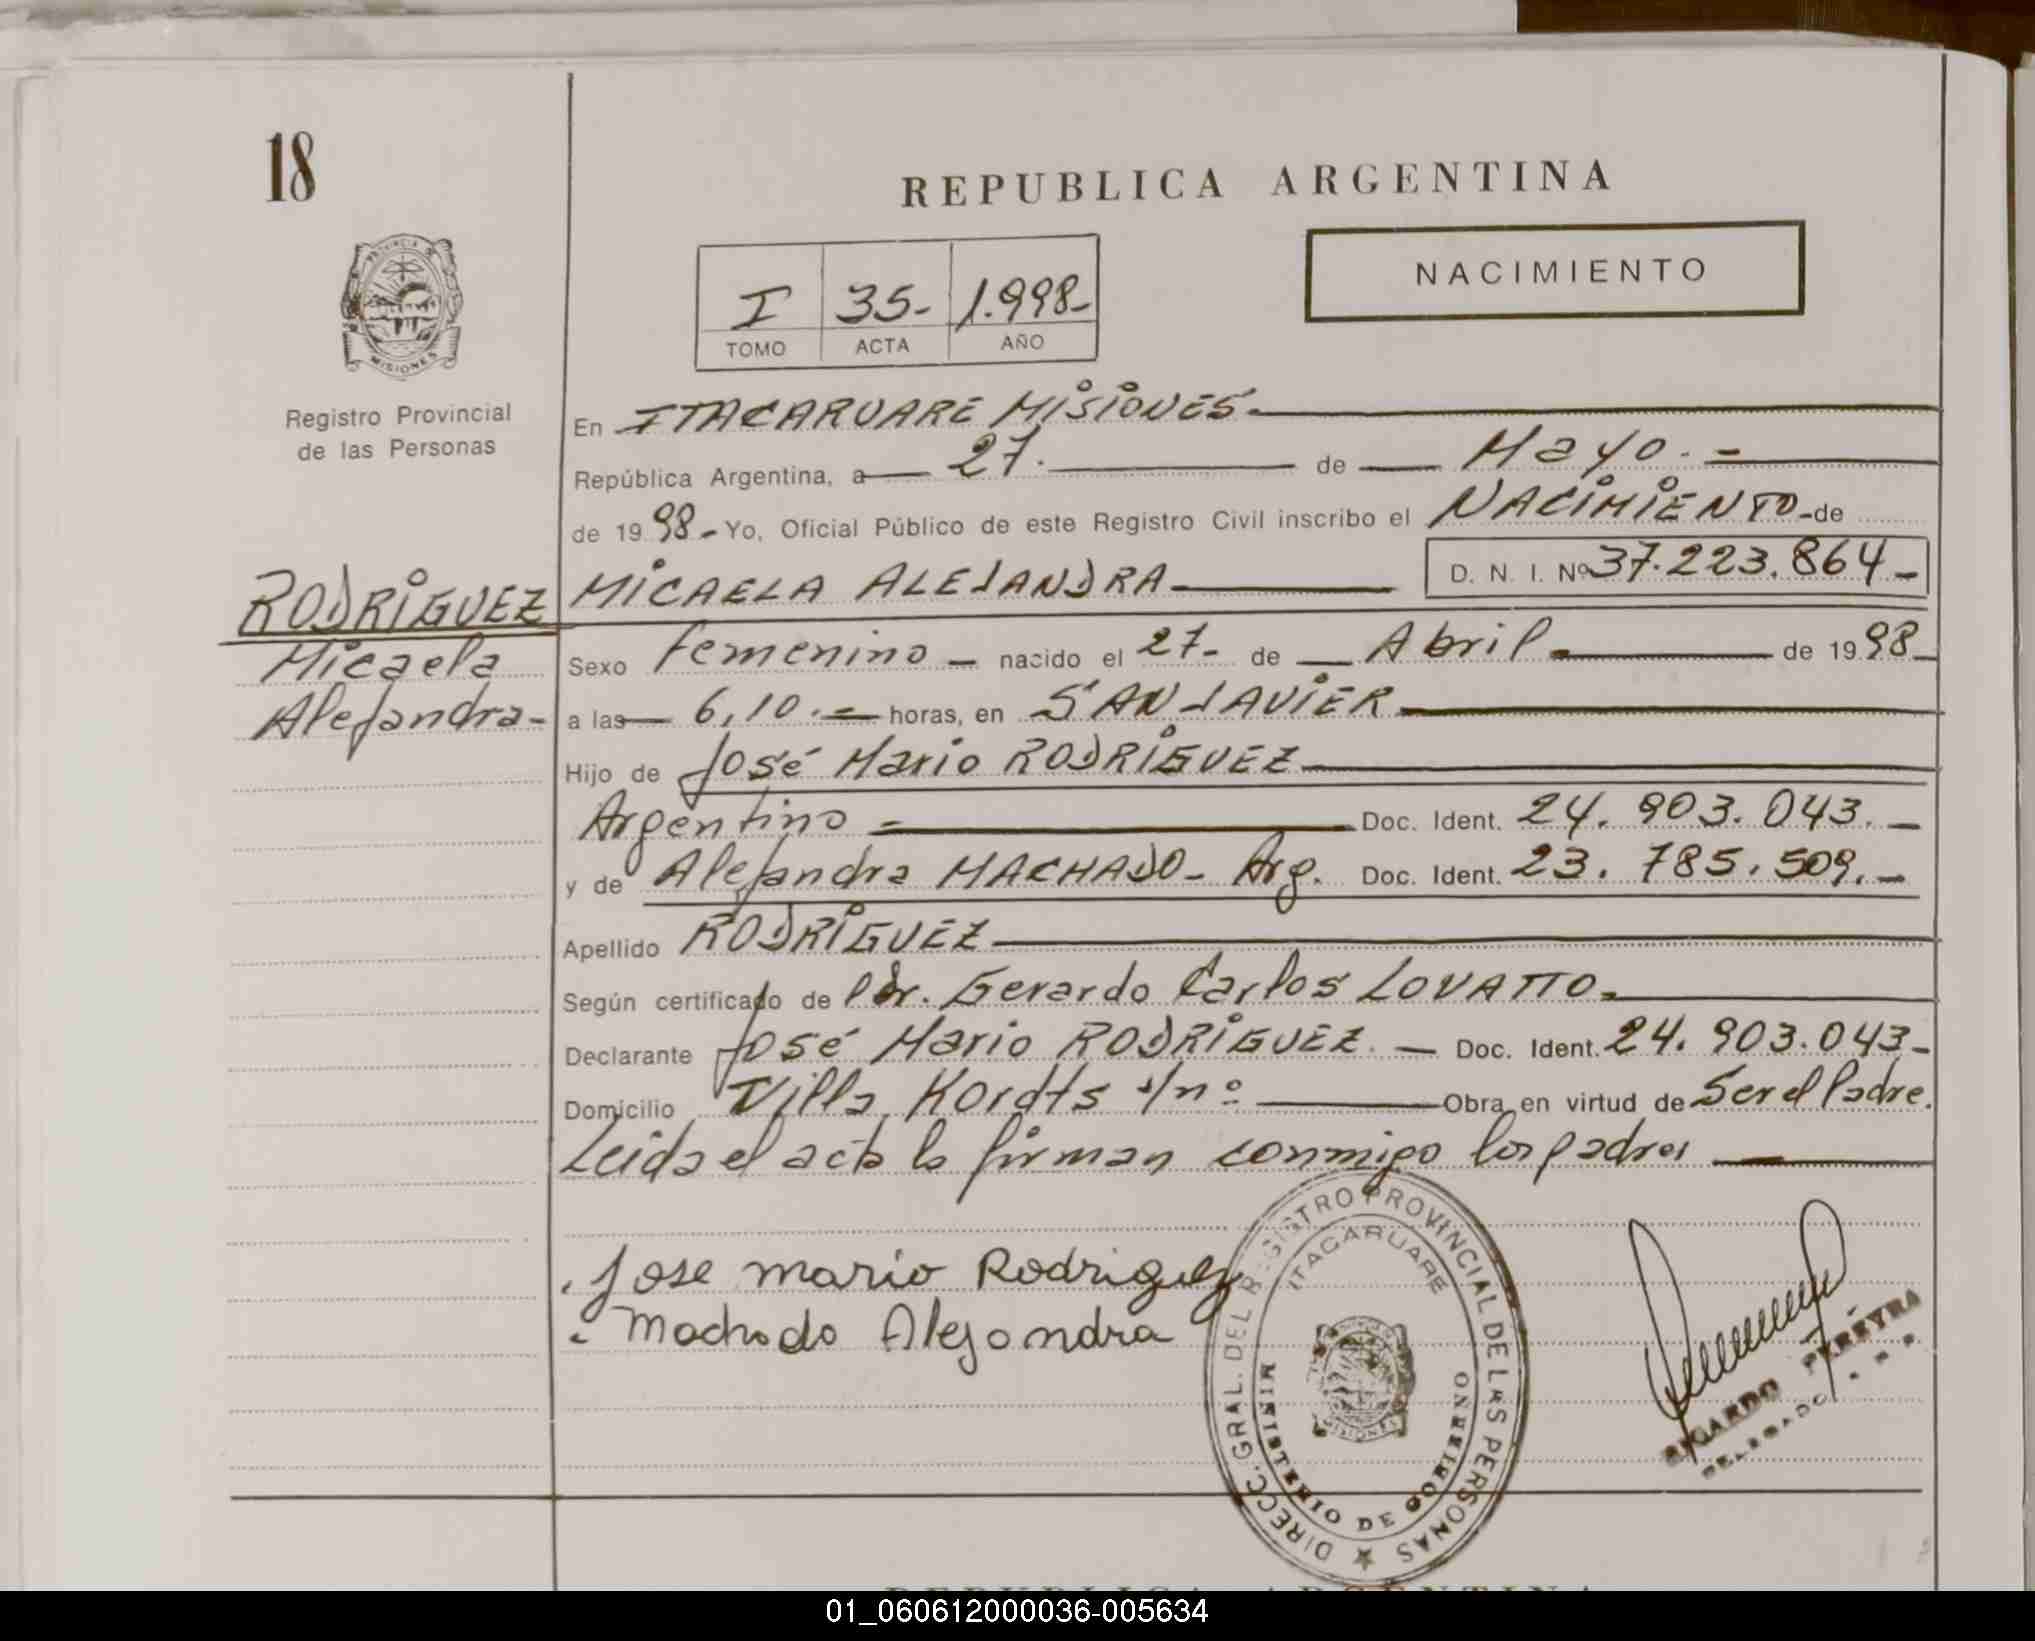 18
REPUBLICA ARGENTINA
NACIMIENTO
I 35- 1.998-
TOMO ACTA AÑO
PROVINCIA DE
MISIONES
Registro Provincial
de las Personas
En ITACARUARE MISIONES.
República Argentina, a 27. de Mayo.-
de 1998- Yo, Oficial Público de este Registro Civil inscribo el NACIMIENTO-de
RODRIGUEZ MICAELA ALEJANDRA D. N. I. Nº 37.223.864-
Micaela
Alejandra-
Sexo Femenino - nacido el 27- de Abril. de 1998-
a las 6,10.- horas, en SAN JAVIER
Hijo de José Mario RODRIGUEZ
Argentino - Doc. Ident. 24.903.043.-
y de Alejandra MACHADO- Arg. Doc. Ident. 23.785.509.-
Apellido RODRIGUEZ
Según certificado de Dr. Gerardo Carlos LOVATTO.
Declarante José Mario RODRIGUEZ. - Doc. Ident. 24.903.043-
Domicilio Villa Kordts s/nº Obra en virtud de Ser el Padre.
Leida el acta la firman conmigo los padres
Jose mario Rodriguez
Machado Alejandra
DIRECC. GRAL. DEL REGISTRO PROVINCIAL DE LAS PERSONAS
ITACARUARE
MINISTERIO DE GOBIERNO
RICARDO PEREYRA
DELEGADO
REPUBLICA ARGENTINA
01_060612000036-005634